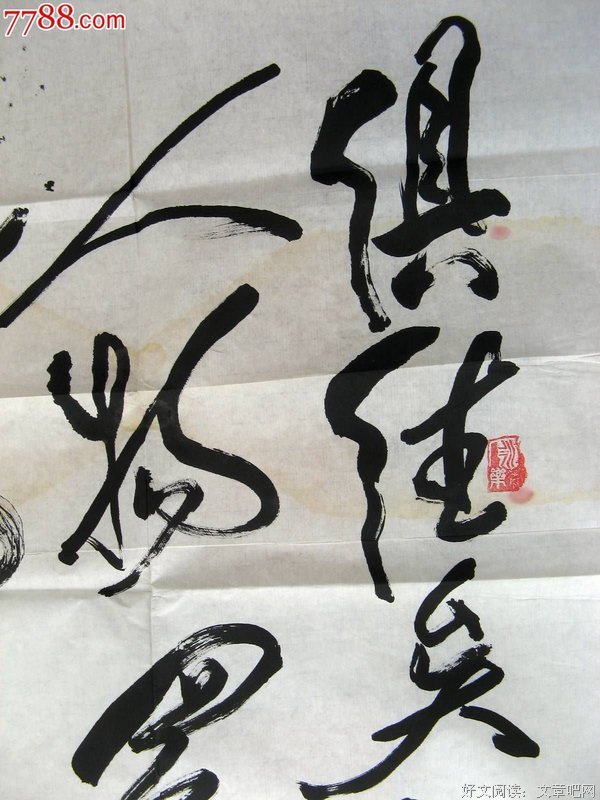 7788.com
俱往矣
人物
好文阅读:文章吧网